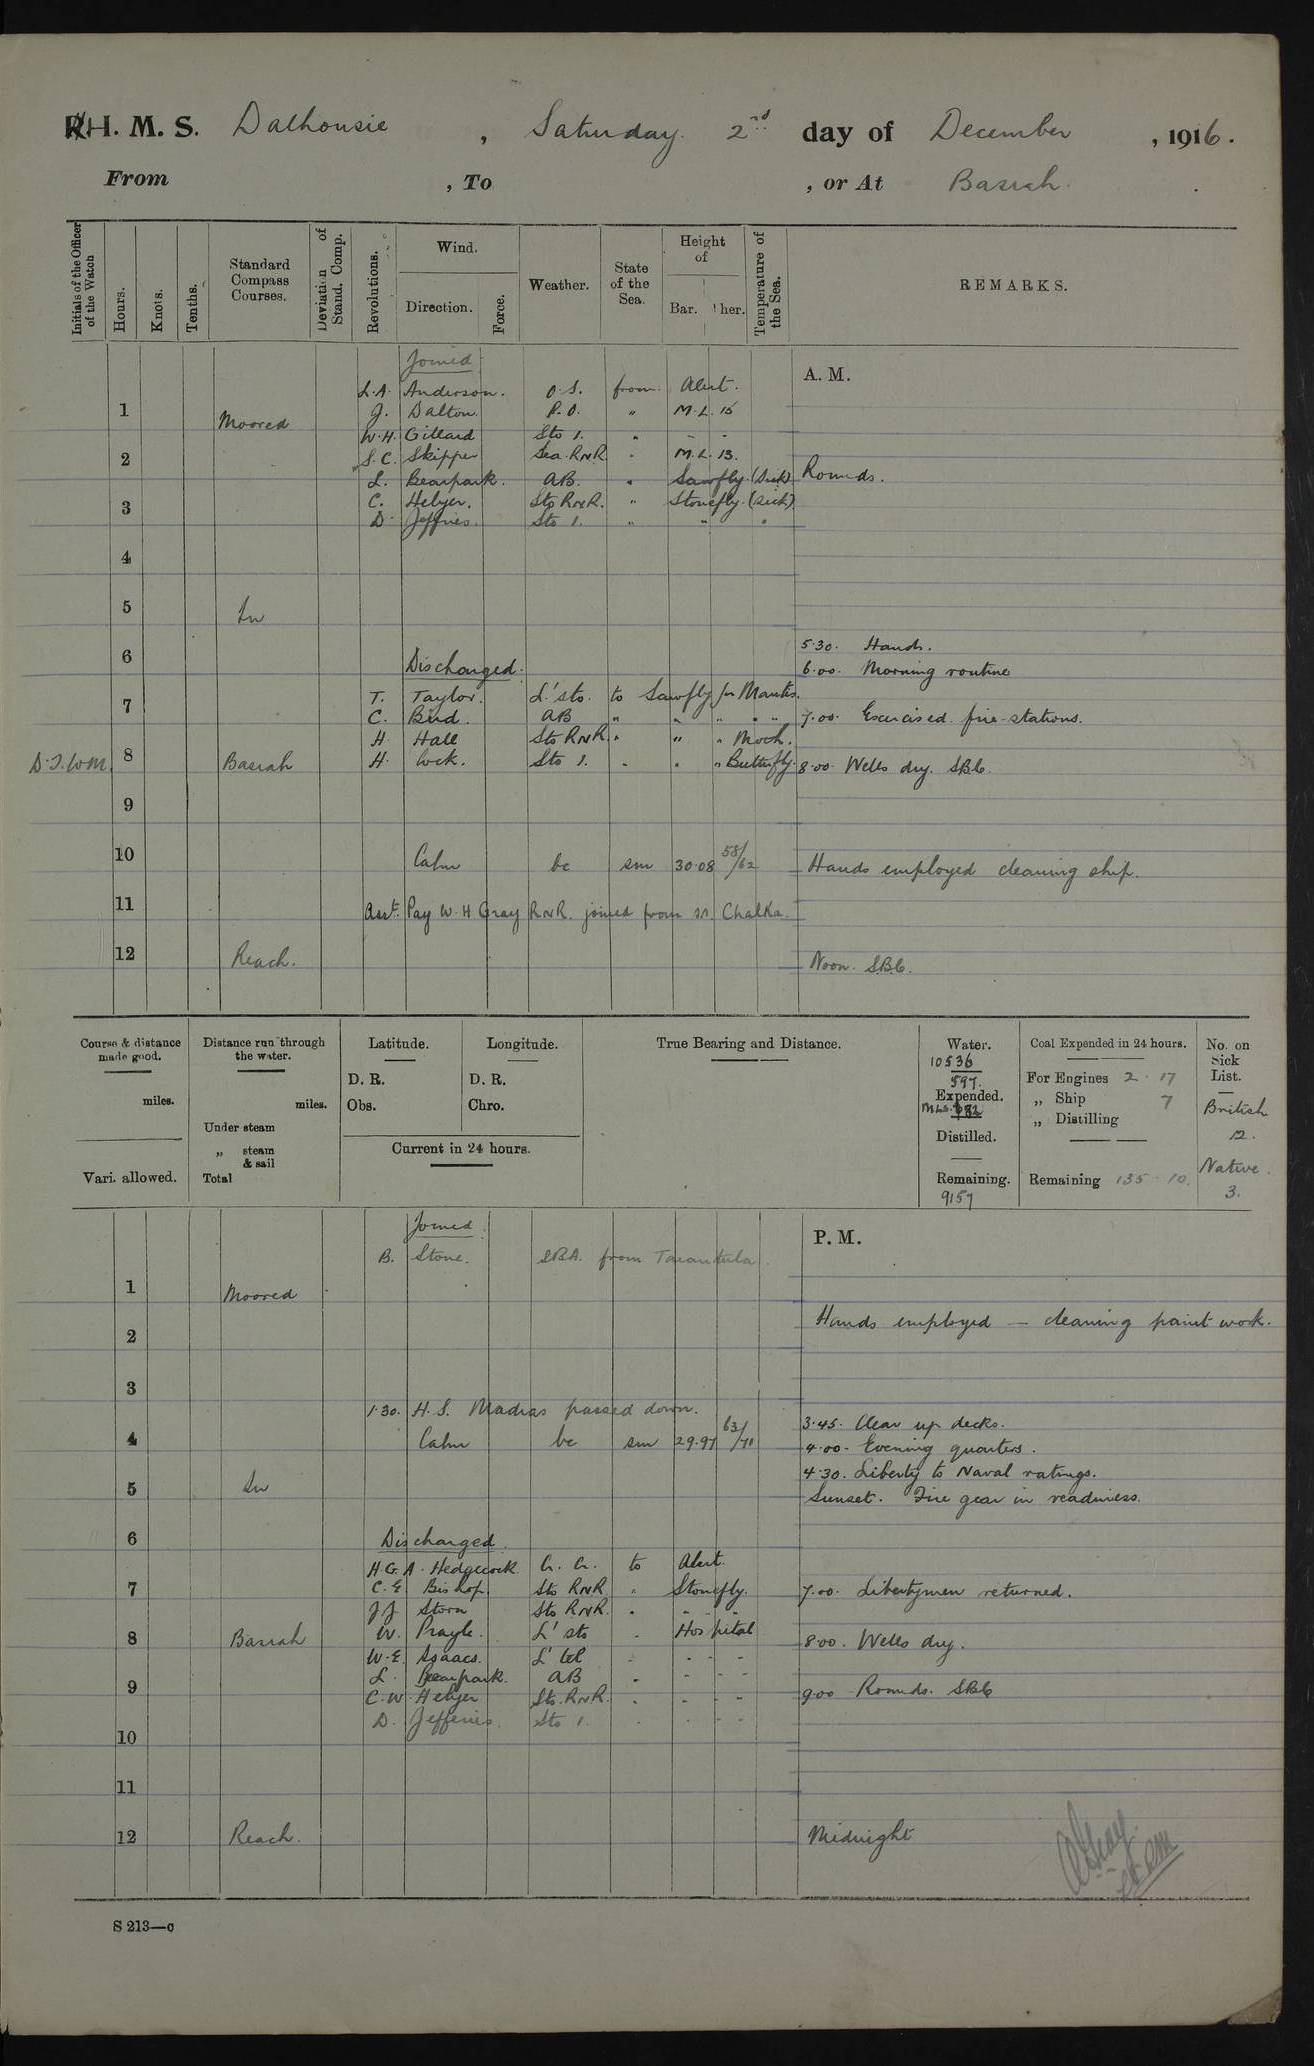 H. M. S. Dalhousie, Saturday 2nd day of December, 1916.
From , To , or At Basrah.
Initials of the Officer of the Watch
Hours.
Knots.
Tenths.
Standard Compass Courses.
Deviation of Stand. Comp.
Revolutions.
Wind.
Direction.
Force.
Weather.
State of the Sea.
Height of
Bar.
Ther.
Temperature of the Sea.
REMARKS.
Joined
A. M.
L.A. Anderson. O.S. from Alert.
1 Moored J. Dalton. P.O. " M.L. 15
W.H. Gillard Sto 1. " - -
2 S.C. Skipper Sea. RNR " M.L. 13.
L. Bearpark. AB. " Sawfly (Sick) Rounds.
3 C. Helyer. Sto RNR. " Stonefly (sick)
D. Jeffries. Sto 1. " " "
4
5 In
5.30. Hands.
6 Discharged. 6.00. Morning routine
T. Taylor. L' sto. to Sawfly for Mantis.
7 C. Bird. AB " " " " " 7.00. Exercised fire-stations.
H. Hall Sto RNR. " " " Moth.
D.J.WM. 8 Basrah H. Cock. Sto 1. " " " Butterfly. 8.00 Wells dry. SBC.
9
10 Calm bc sm 30.08 58/62 Hands employed cleaning ship.
11 Asst. Pay W.H Gray RNR. joined from s.s. Chalka.
12 Reach. Noon. SBC.
Course & distance made good.
miles.
Vari. allowed.
Distance run through the water.
miles.
Under steam
„ steam & sail
Total
Latitude.
D. R.
Obs.
Longitude.
D. R.
Chro.
Current in 24 hours.
True Bearing and Distance.
Water.
10536
597.
Expended.
MLs. 782
Distilled.
Remaining.
9157
Coal Expended in 24 hours.
For Engines 2 . 17
„ Ship 7
„ Distilling
Remaining 135 . 10.
No. on Sick List.
British
12.
Native.
3.
Joined
P. M.
B. Stone. SBA. from Tarantula.
1 Moored
Hands employed — cleaning paint work.
2
3
1.30. H.S. Madras passed down.
3.45. Clear up decks.
4 Calm bc sm 29.97 63/71 4.00. Evening quarters.
4.30. Liberty to Naval ratings.
5 In Sunset. Fire gear in readiness.
6 Discharged.
H.G.A. Hedgecock to Alert.
7 C.E. Bishop. Sto RNR. " Stonefly. 7.00. Libertymen returned.
J.J. Storr Sto RNR. " " "
W. Prayle. L' sto . Hospital
8 Basrah 8.00. Wells dry.
W.E. Isaacs. L' - - -
L. Bearpark. AB - - - -
9 C.W. Helyer Sto. RNR. . - - - 9.00 Rounds. SBC
D. Jefferies. Sto 1. . - - -
10
11
12 Reach. Midnight
S 213—c